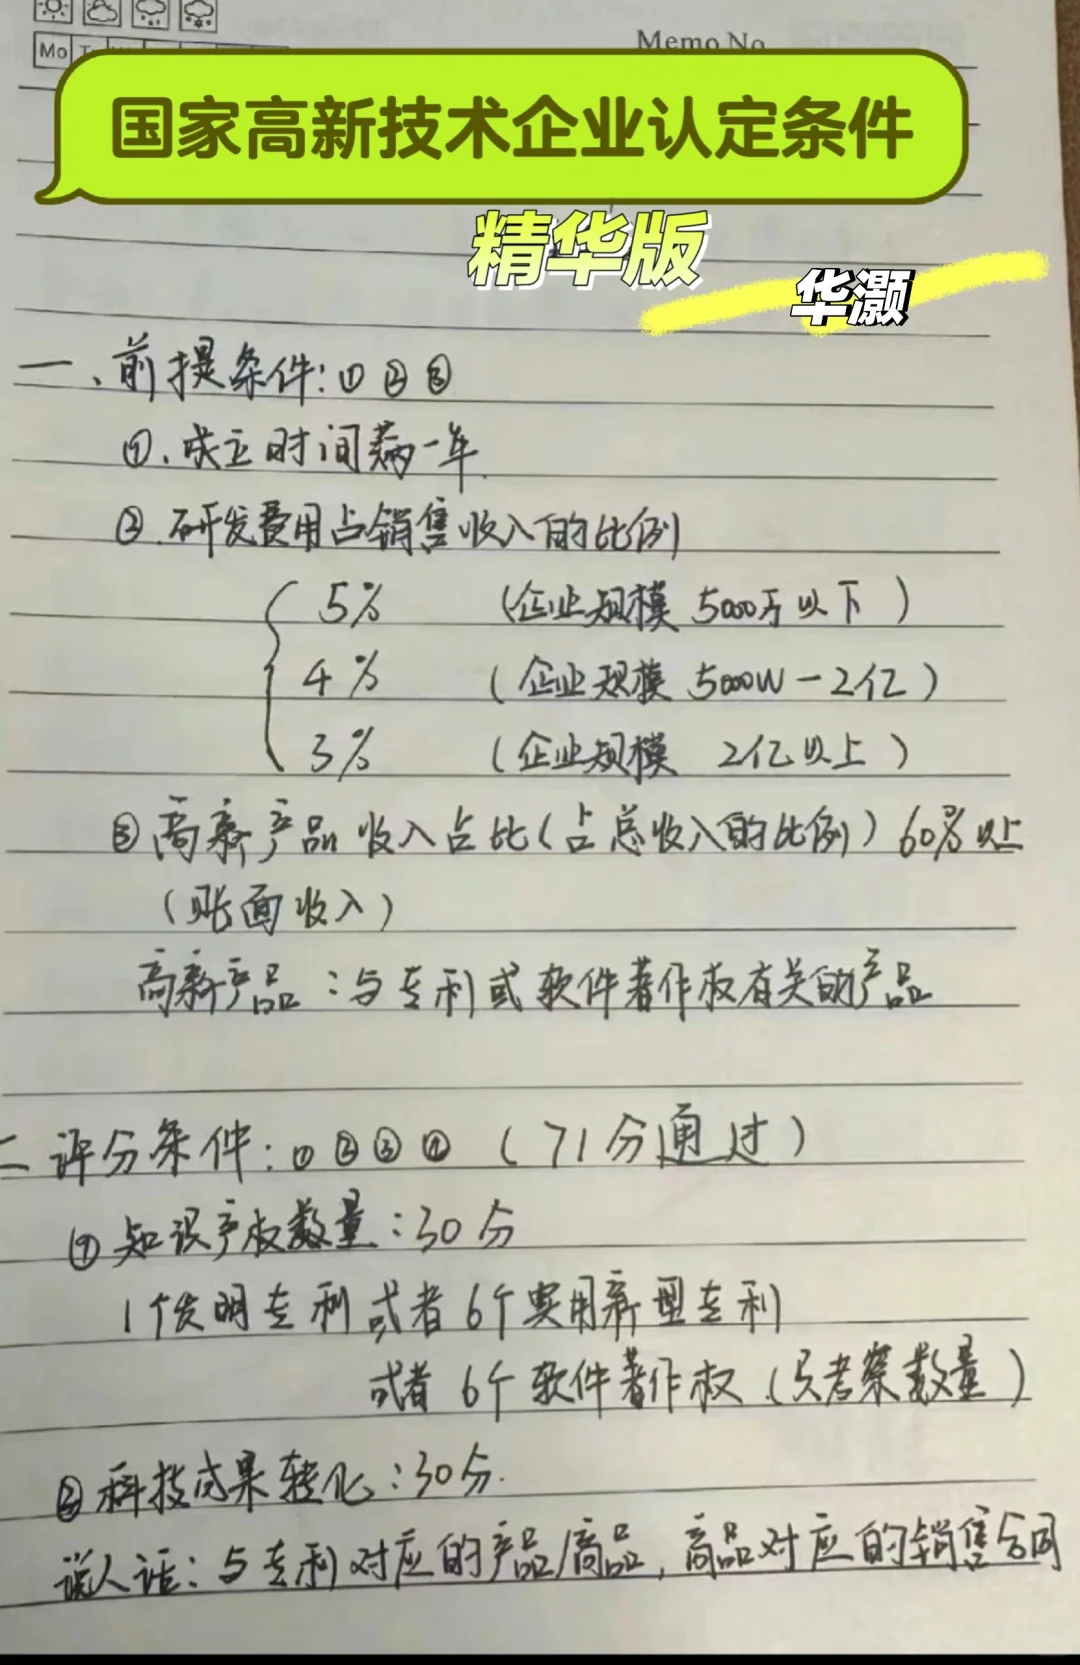 Mo
Memo No.
国家高新技术企业认定条件
精华版
华灏
一、前提条件:①②③
①、成立时间满一年.
②.研发费用占销售收入的比例
5% (企业规模 5000万以下)
4% (企业规模 5000W-2亿)
3% (企业规模 2亿以上)
③高新产品收入占比(占总收入的比例)60%以上
(账面收入)
高新产品:与专利或软件著作权有关的产品
二 评分条件:①②③④ (71分通过)
①知识产权数量:30分
1个发明专利或者6个实用新型专利
或者6个软件著作权(只考察数量)
②科技成果转化:30分.
说人话:与专利对应的产品/商品,商品对应的销售合同